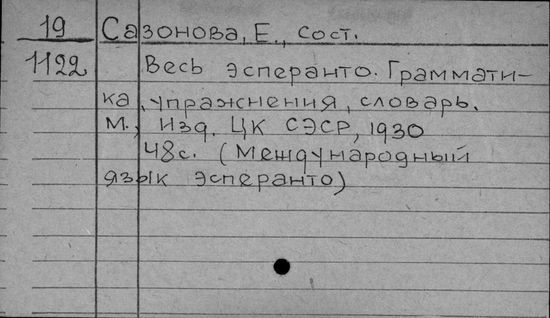 19 Сазонова, Е., сост.
1122 Весь эсперанто. Граммати-
ка, упражнения, словарь.
М., Изд. ЦК СЭСР, 1930
48с. (Международный
язык эсперанто)